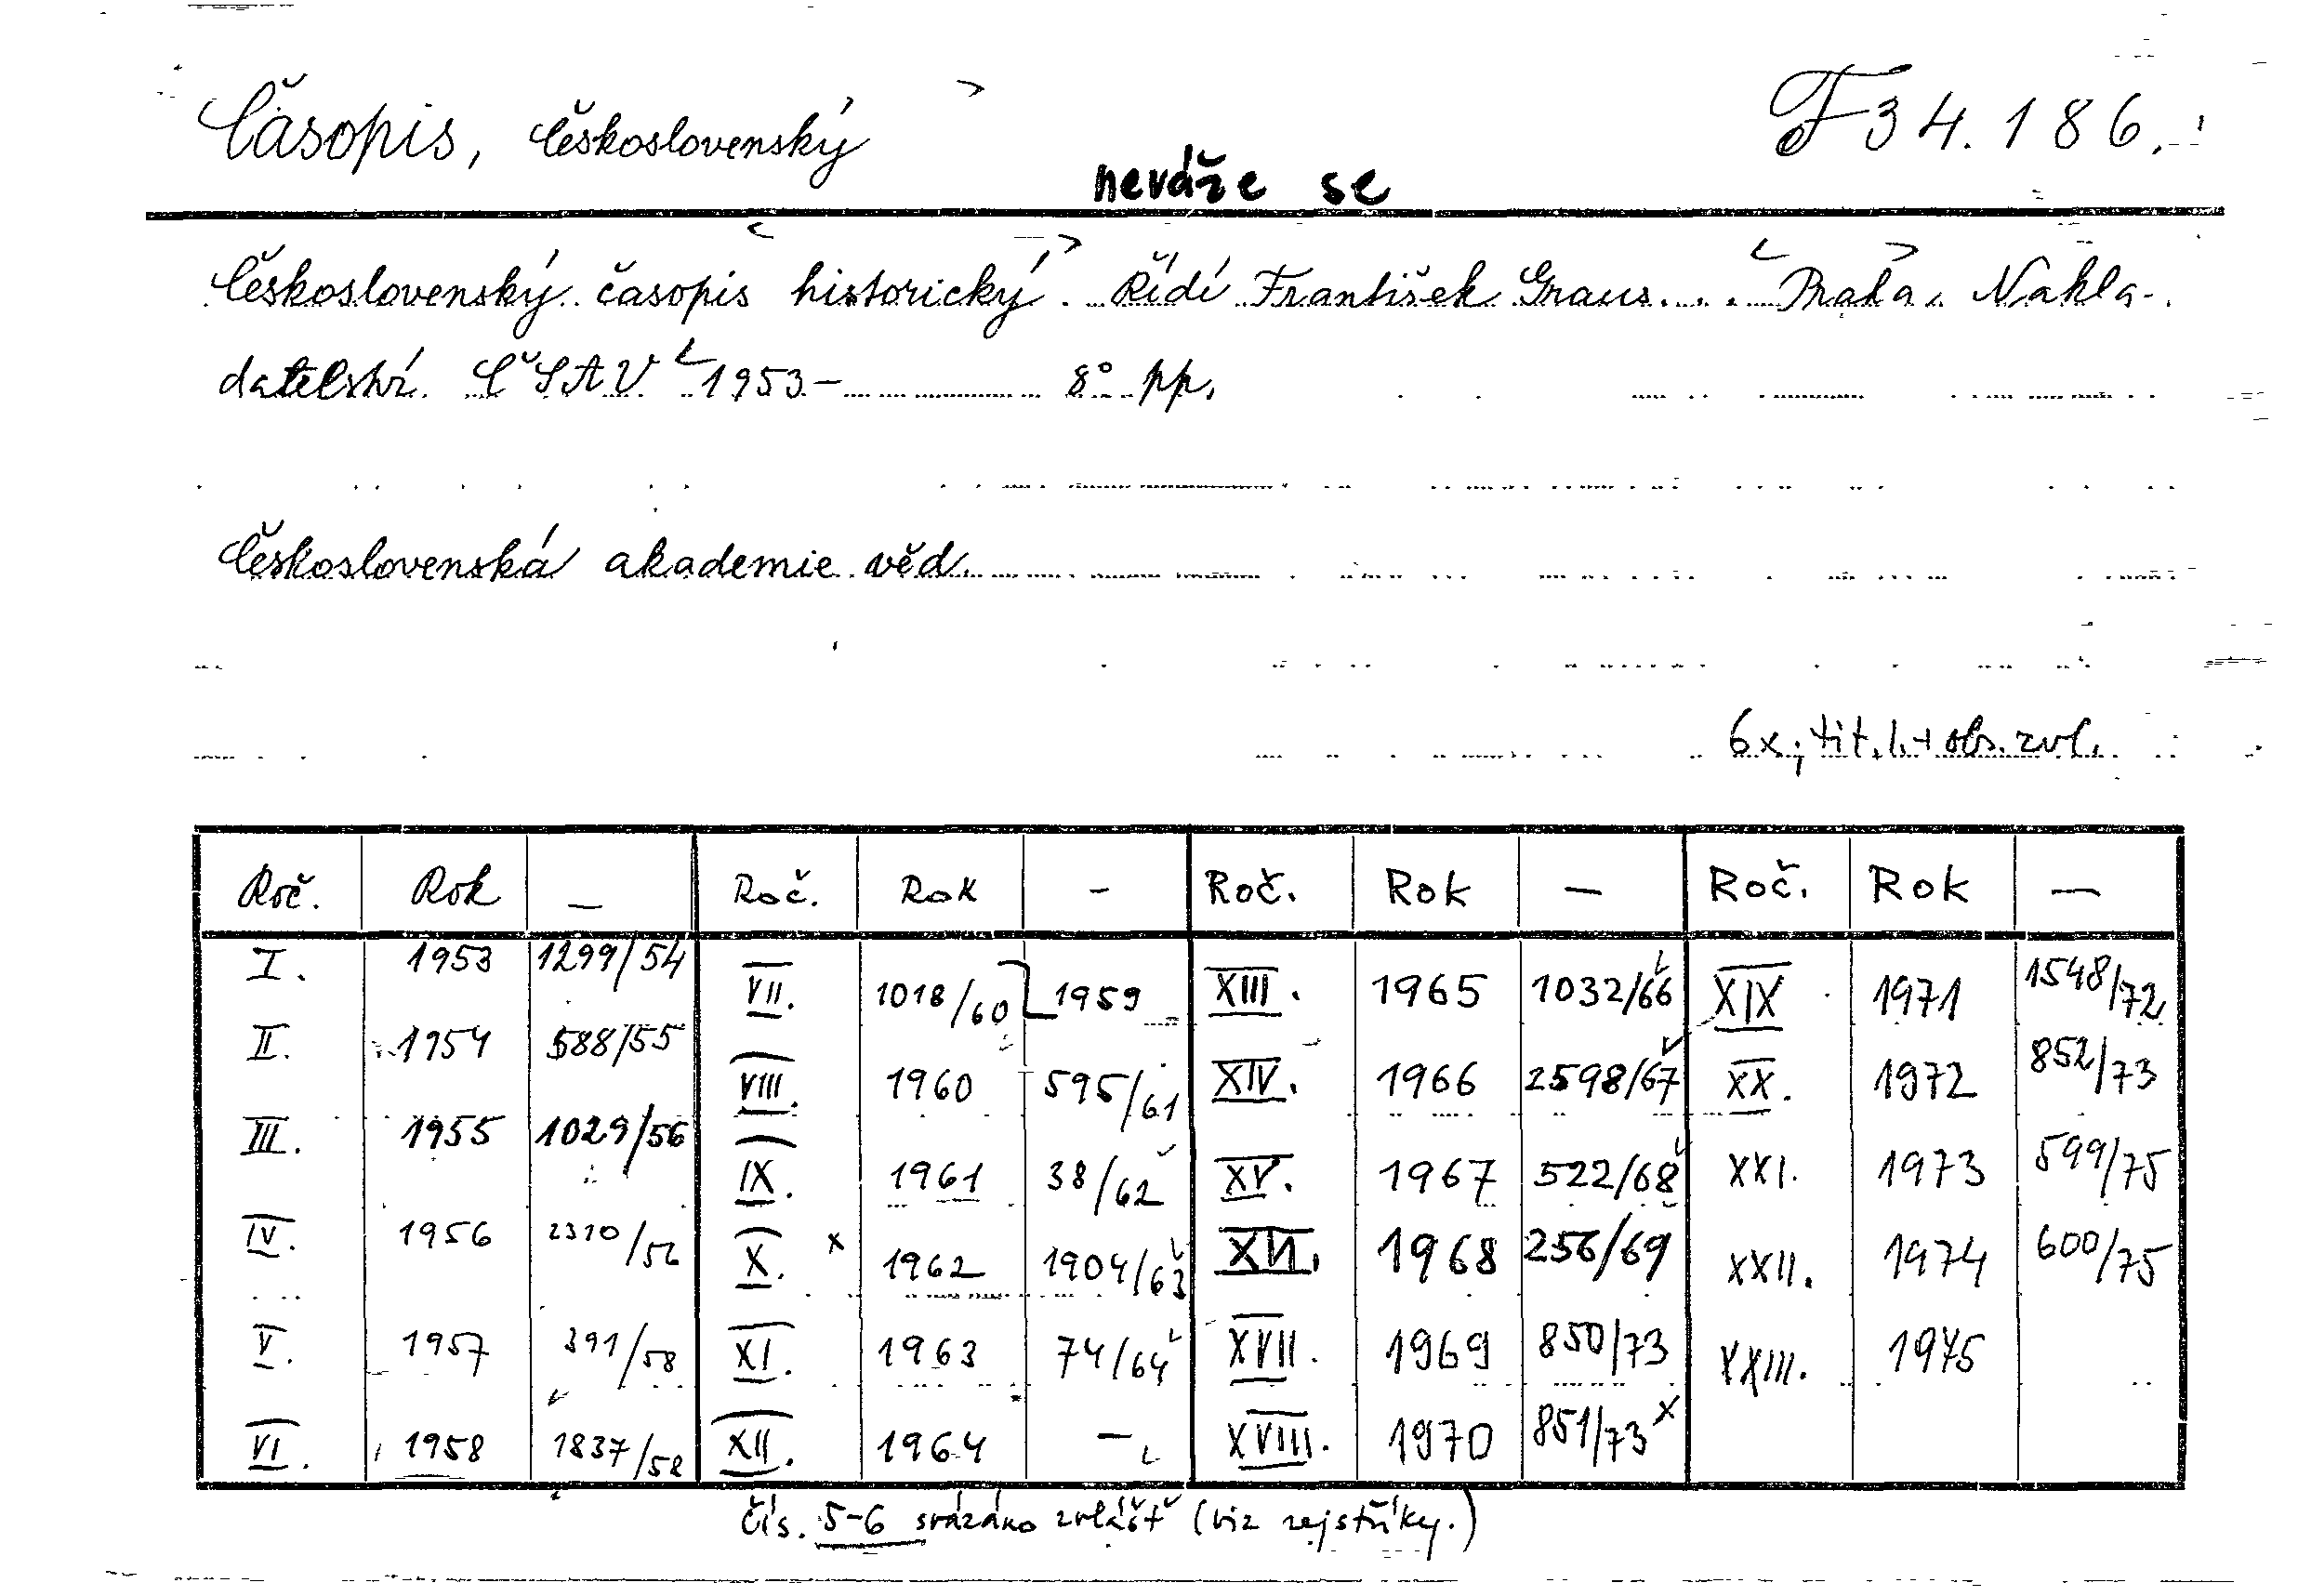 Časopis, československý F 34.186.
neváže se
Československý časopis historický. Řídí František Graus... Praha, Nakla-
datelství ČSAV 1953- 8° pp.
Československá akademie věd.
6x; tit. l. + obs. zvl.
Roč. Rok — Roč. Rok - Roč. Rok — Roč. Rok —
I. 1953 1299/54 VII. 1018/60 1959 XIII. 1965 1032/66 XIX 1971 1548/72
II. 1954 588/55 VIII. 1960 595/61 XIV. 1966 2598/67 XX. 1972 852/73
III. 1955 1029/56 IX. 1961 38/62 XV. 1967 522/68 XXI. 1973 599/75
IV. 1956 2310/56 X. x 1962 1904/63 XVI. 1968 256/69 XXII. 1974 600/75
V. 1957 391/58 XI. 1963 74/64 XVII. 1969 850/73 XXIII. 1975
VI. 1958 1837/58 XII. 1964 — XVIII. 1970 851/73 x
čís. 5-6 svázáno zvlášť (viz rejstříky.)